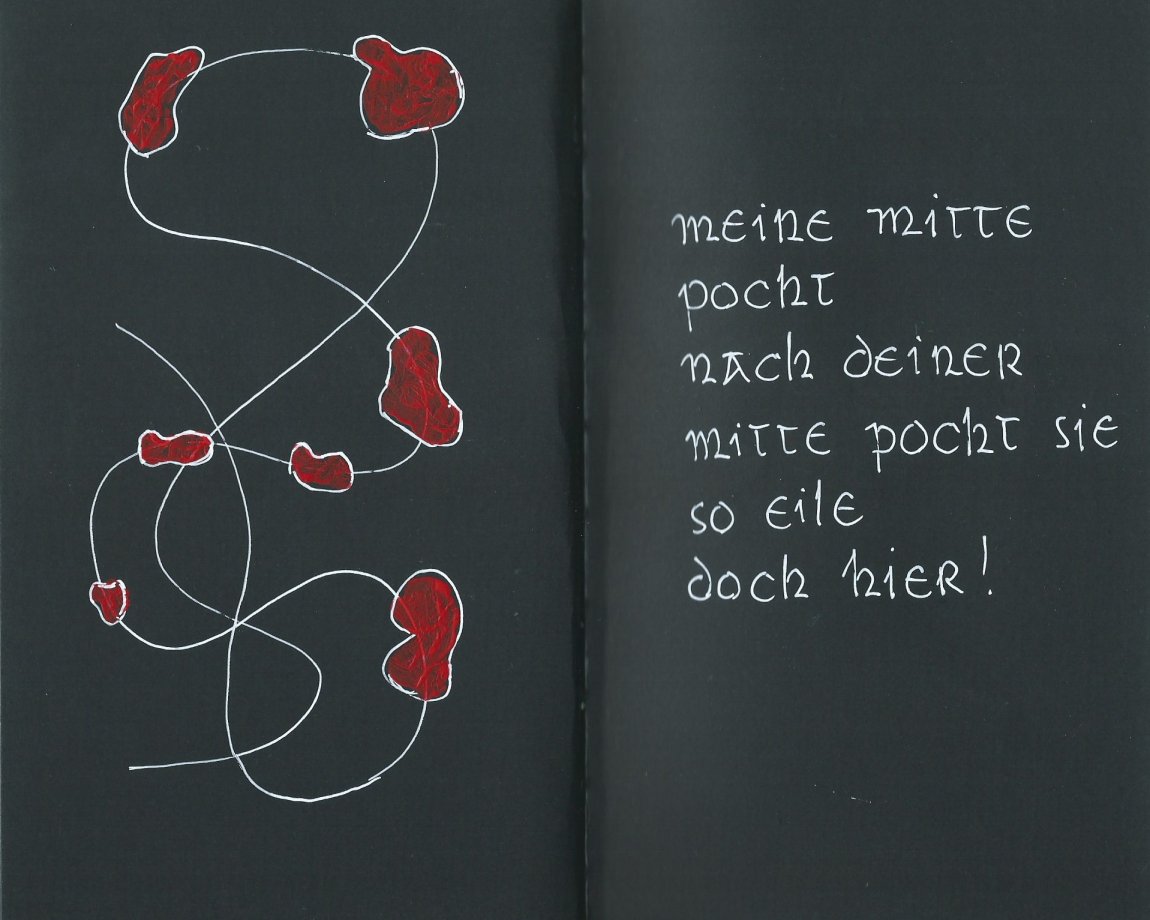 meine mitte
pocht
nach deiner
mitte pocht sie
so eile
doch hier!